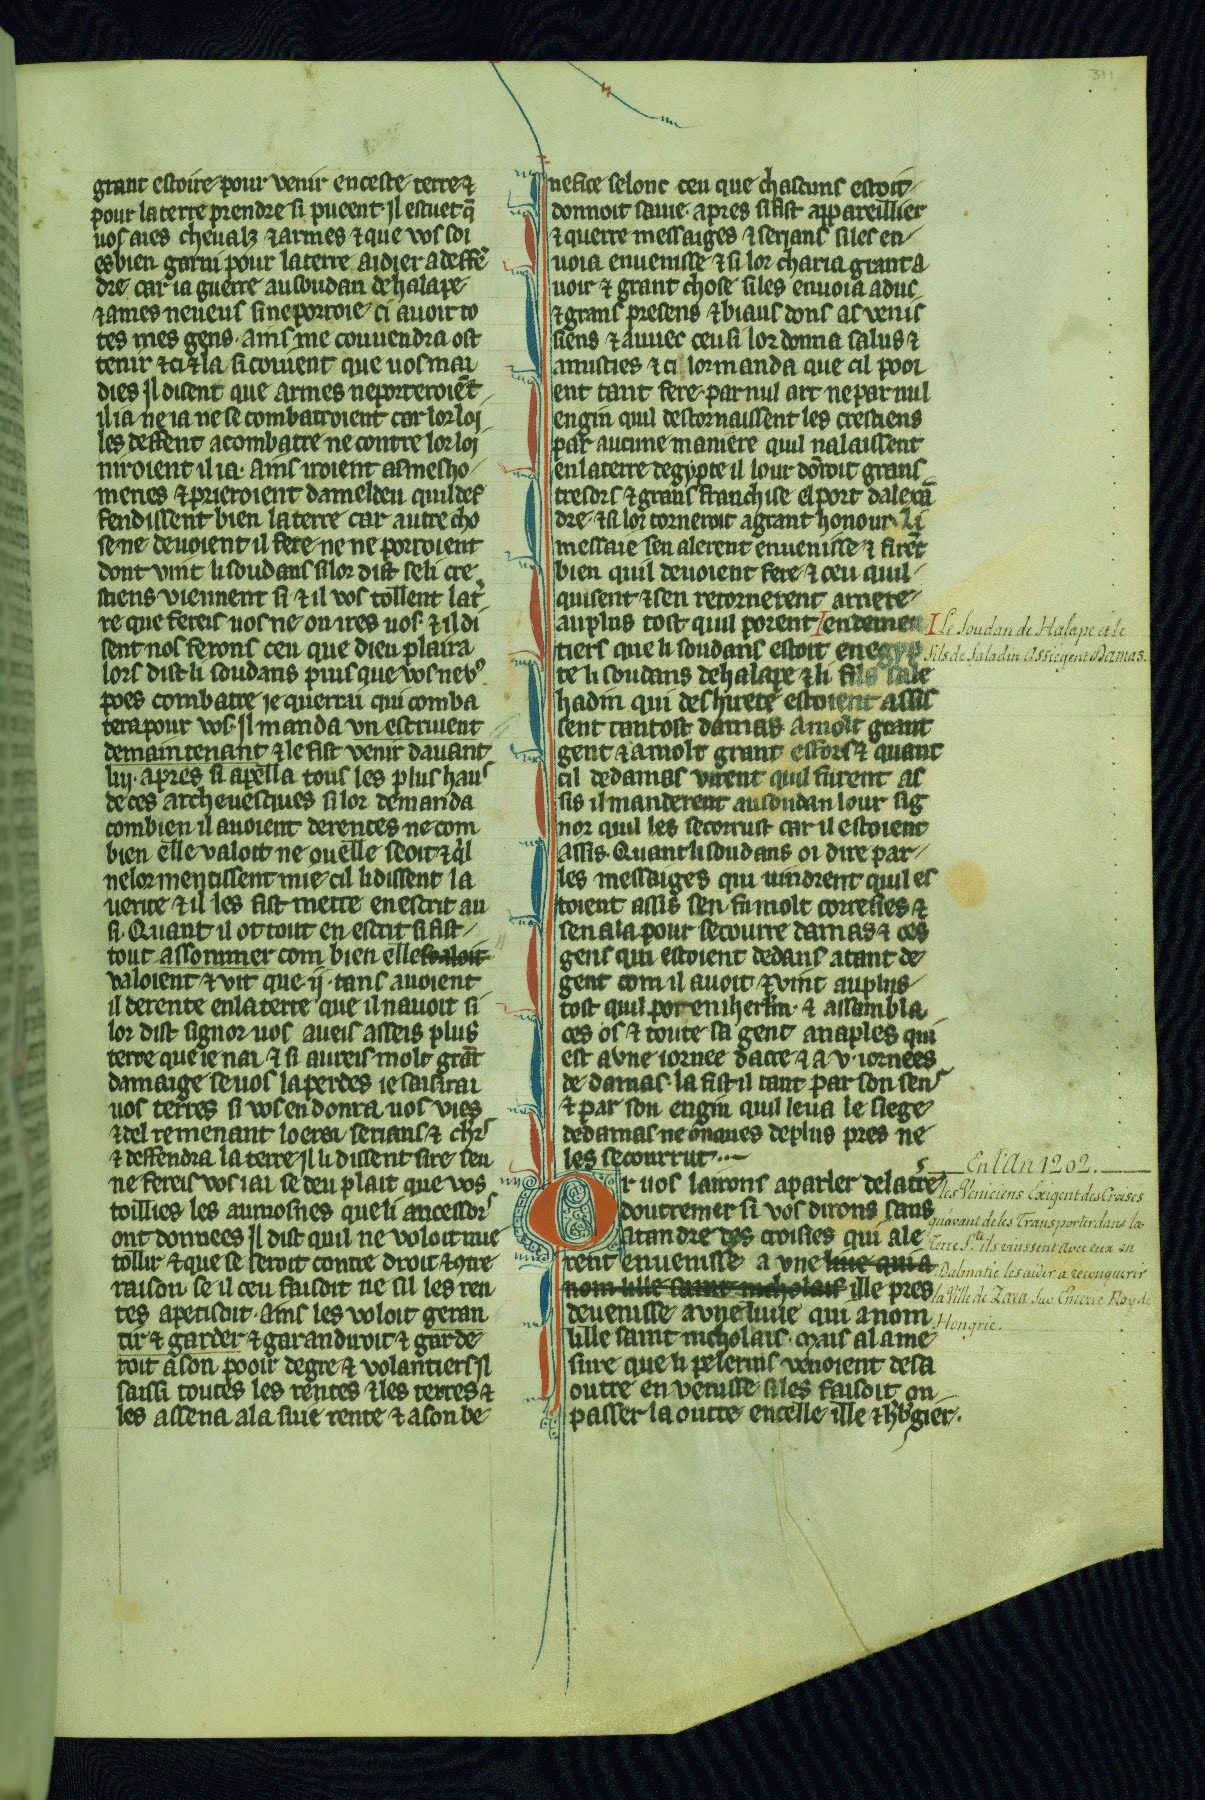 311
grant estoire pour venir en ceste terre ⁊
pour la terre prendre si pueent. Jl estuet q̄
uos aies cheualz ⁊ armes ⁊ que vos soi
es bien garni pour la terre aidier a deffē
dre. car ia guerre au soudan de halape
⁊ a mes neueus si ne porroie ci auoir to
tes mes gens. ains me couuendra ost
tenir ⁊ ci ⁊ la si couient que uos mai
dies Jl disent que armes ne porteroiēt
il ia ne ia ne se combatroient car lor loi
les deffent a combatre ne contre lor loi
niroient il ia. Ains iroient as mesho
menes ⁊ prieroient dameldeu quil def
fendissent bien la terre car autre cho
se ne deuoient il fere ne ne porroient
dont vint li soudans si lor dist se li cre
stiens viennent si ⁊ il vos tollent la t̄
re que fereis uos ne ou ires uos. ⁊ il di
sent nos ferons ceu que dieu plaira
lors dist li soudans puis que vos ne v9
poes combatre ie querrai qui comba
tera pour vos. Jl manda vn escriuent
demaintenant ⁊ le fist venir dauant
luj. apres si apella tous les plus haus
de ces archeuesques si lor demanda
combien il auoient de rentes ne com
bien ēlle valoit ne ou ēlle seoit ⁊ q̄l
ne lor mentissent mie cil li dissent la
verite ⁊ il les fist mettre en escrit au
si. Quant il ot tout en escrit si fist
tout assommer com bien elle seoit
valoient ⁊ vit que .ij. tans auoient
il de rente en la terre que il nauoit si
lor dist signor uos aueis asseis plus
terre que ie nai ⁊ si aureis molt grāt
damaige se uos la perdes ie saisirai
uos terres si vos en donra uos vies
⁊ del remenant loerai serians ⁊ chrs
⁊ deffendra la terre Jl li dissent sire seu
ne fereis vos iai se deu plait que vos
toillies les aumosnes que li ancessors
ont donnees Jl dist quil ne voloit mie
tollir ⁊ que se seroit contre droit ⁊ 9tre
raison se il ceu faisoit ne sil les ren
tes apetisoit. Ains les voloit geran
tir ⁊ garder ⁊ garandiroit ⁊ garde
roit a son pooir de gre ⁊ volantiers Jl
saissi toutes les rentes ⁊ les terres ⁊
les assena a la siue rente ⁊ a son be
nefice selonc ceu que chascuns estoit
donnoit sauie. apres si fist appareillier
⁊ querre messaiges ⁊ serians si les en
uoia en uenisse ⁊ si lor charia grant a
uoir ⁊ grant chose si les enuoia a duc
⁊ grans presens ⁊ biaus dons as venis
siens ⁊ auuec ceu si lor donna salus ⁊
amisties ⁊ ci lor manda que cil pooi
ent tant fere. par nul art ne par nul
engin quil destornaissent les crestiens
par aucune maniere quil nalaissent
en la terre degypte il lour dōroit grans
tresors ⁊ grans franchise el port dalexā
dre. ⁊ si lor torneroit a grant honour. Li
messaie sen alerent en uenisse ⁊ firēt
bien quil deuoient fere ⁊ ceu quil
quisent ⁊ sen retornerent arriere
au plus tost quil porent Jendemen
tiers que li soudans estoit en egyp
te li soudans de halape ⁊ li fils sale
hadin qui deshirete estoient assis
sent tantost damas a molt grant
gent ⁊ a molt grant effors ⁊ quant
cil de damas virent quil furent as
sis il manderent au soudan lour sig
nor quil les secorrust car il estoient
assis. Quant li soudans oi dire par
les messaiges qui uindrent quil es
toient assis sen fu molt correcies ⁊
sen ala pour secourre damas ⁊ ces
gens qui estoient dedans a tant de
gent com il auoit ⁊ vint au plus
tost quil pot en iherlm̄. ⁊ assambla
ces os ⁊ toute sa gent a naples qui
est a vne iornee dacre ⁊ a .v. iornees
de damas. la fist il tant par son sens
⁊ par son engin quil leua le siege
de damas ne onques de plus pres ne
les secourrut.
Or uos lairons a parler de la t̄re
doutremer si vos dirons sans
atandre des croisies qui ale
rent en uenisse a vne liue qui a
nom lille saint nicholais ille pres
de uenisse a vne liuie qui a nom
lille saint nicholais. Mais a la me
sure que li pelerins venoient de sa
outre en venisse si les faisoit on
passer la outre en celle ille ⁊ hbgier.
Le Soudan de Halape et le
fils de Saladin Assiegent Damas.
En l'An 1202.
les Veniciens Exigent des Croisés
qu'avant de les Transporter dans la
Terre Ste. ils vinssent avec eux en
Dalmatie les aider à reconquerir
la Ville de Zara sur Emeric Roy de
Hongrie.